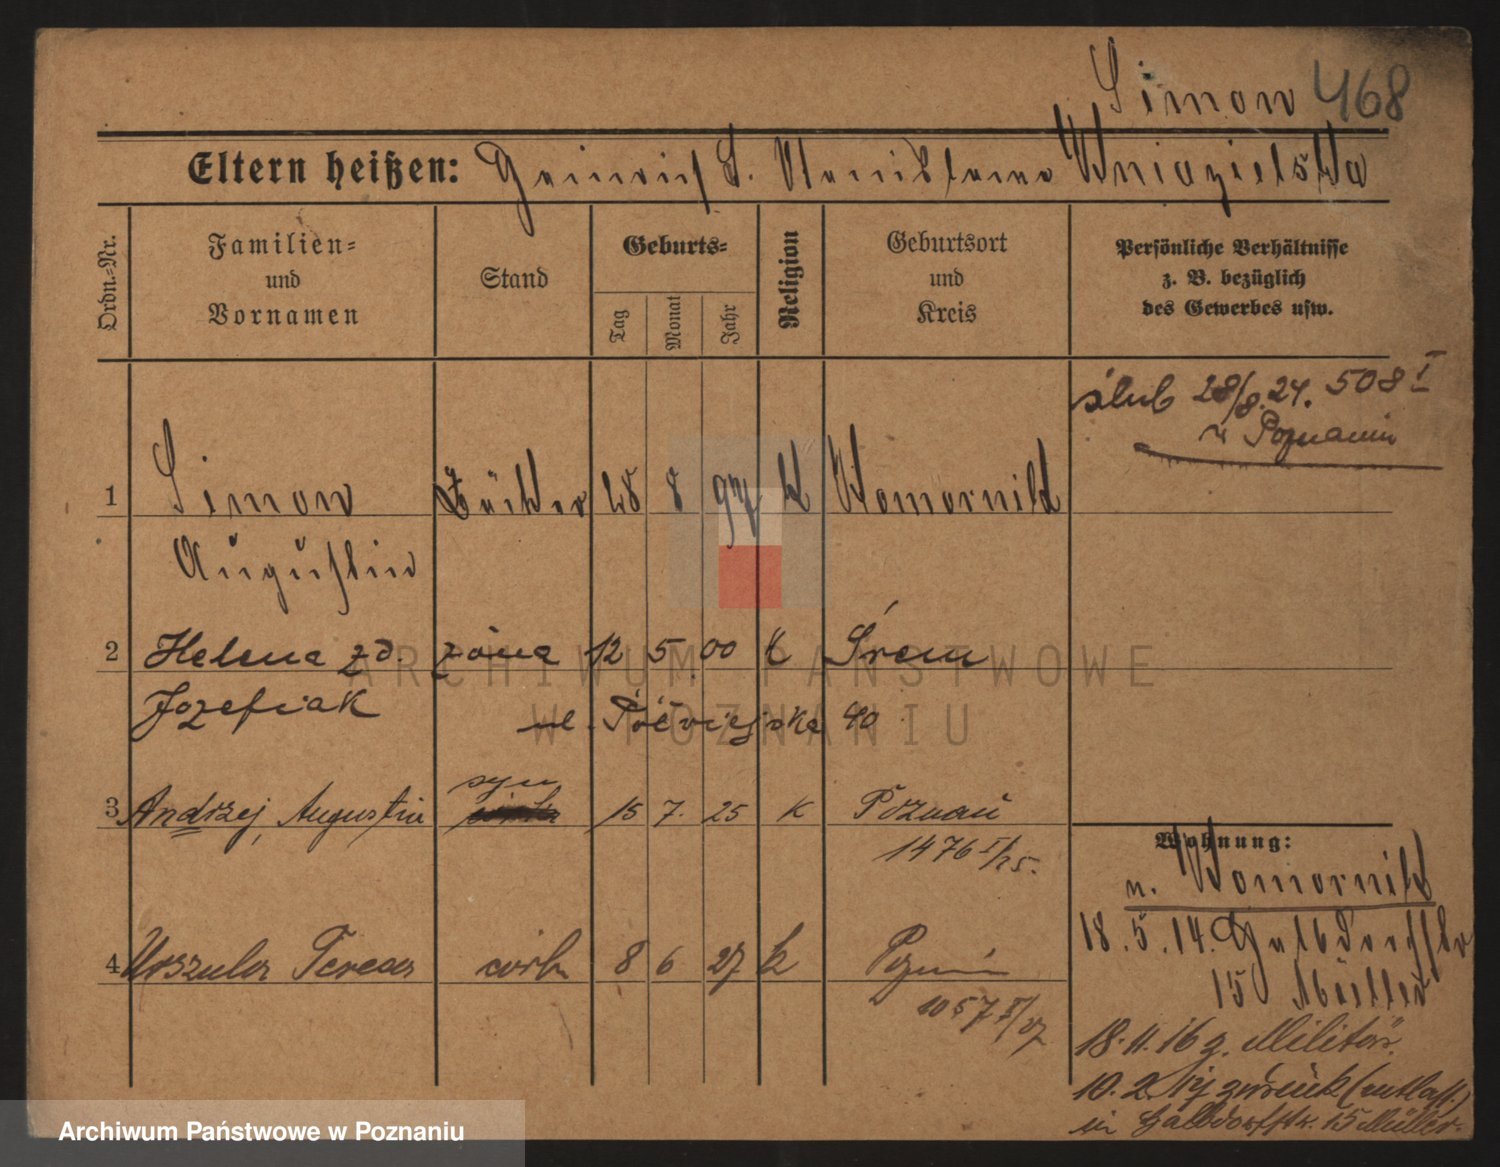 Simon 468
Eltern heißen: Heinrich S. Stanislawa Kniazielska
Ordn.-Nr.
Familien-
und
Vornamen
Stand
Geburts-
Tag
Monat
Jahr
Religion
Geburtsort
und
Kreis
Persönliche Verhältnisse
z. B. bezüglich
des Gewerbes usw.
ślub 28/8.24. 508 I
w Poznaniu
1 Simon 28 8 97 k Komornik
Augustin
2 Helena zd. żona 12 5 00 k Śrem
Józefiak ul. 40
3 Andrzej, Augustin syn 15 7. 25 k Poznań
1476 I/25.
4 Urszula Teresa córka 8 6 27 k Poznań
1057 II/27
Wohnung:
n. Komornik
18.5.14.
15 Müller
18.11.16 z. Militär.
10.2.17 zurück (entlass.)
in 15 Müller.
ARCHIWUM PAŃSTWOWE
W POZNANIU
Archiwum Państwowe w Poznaniu